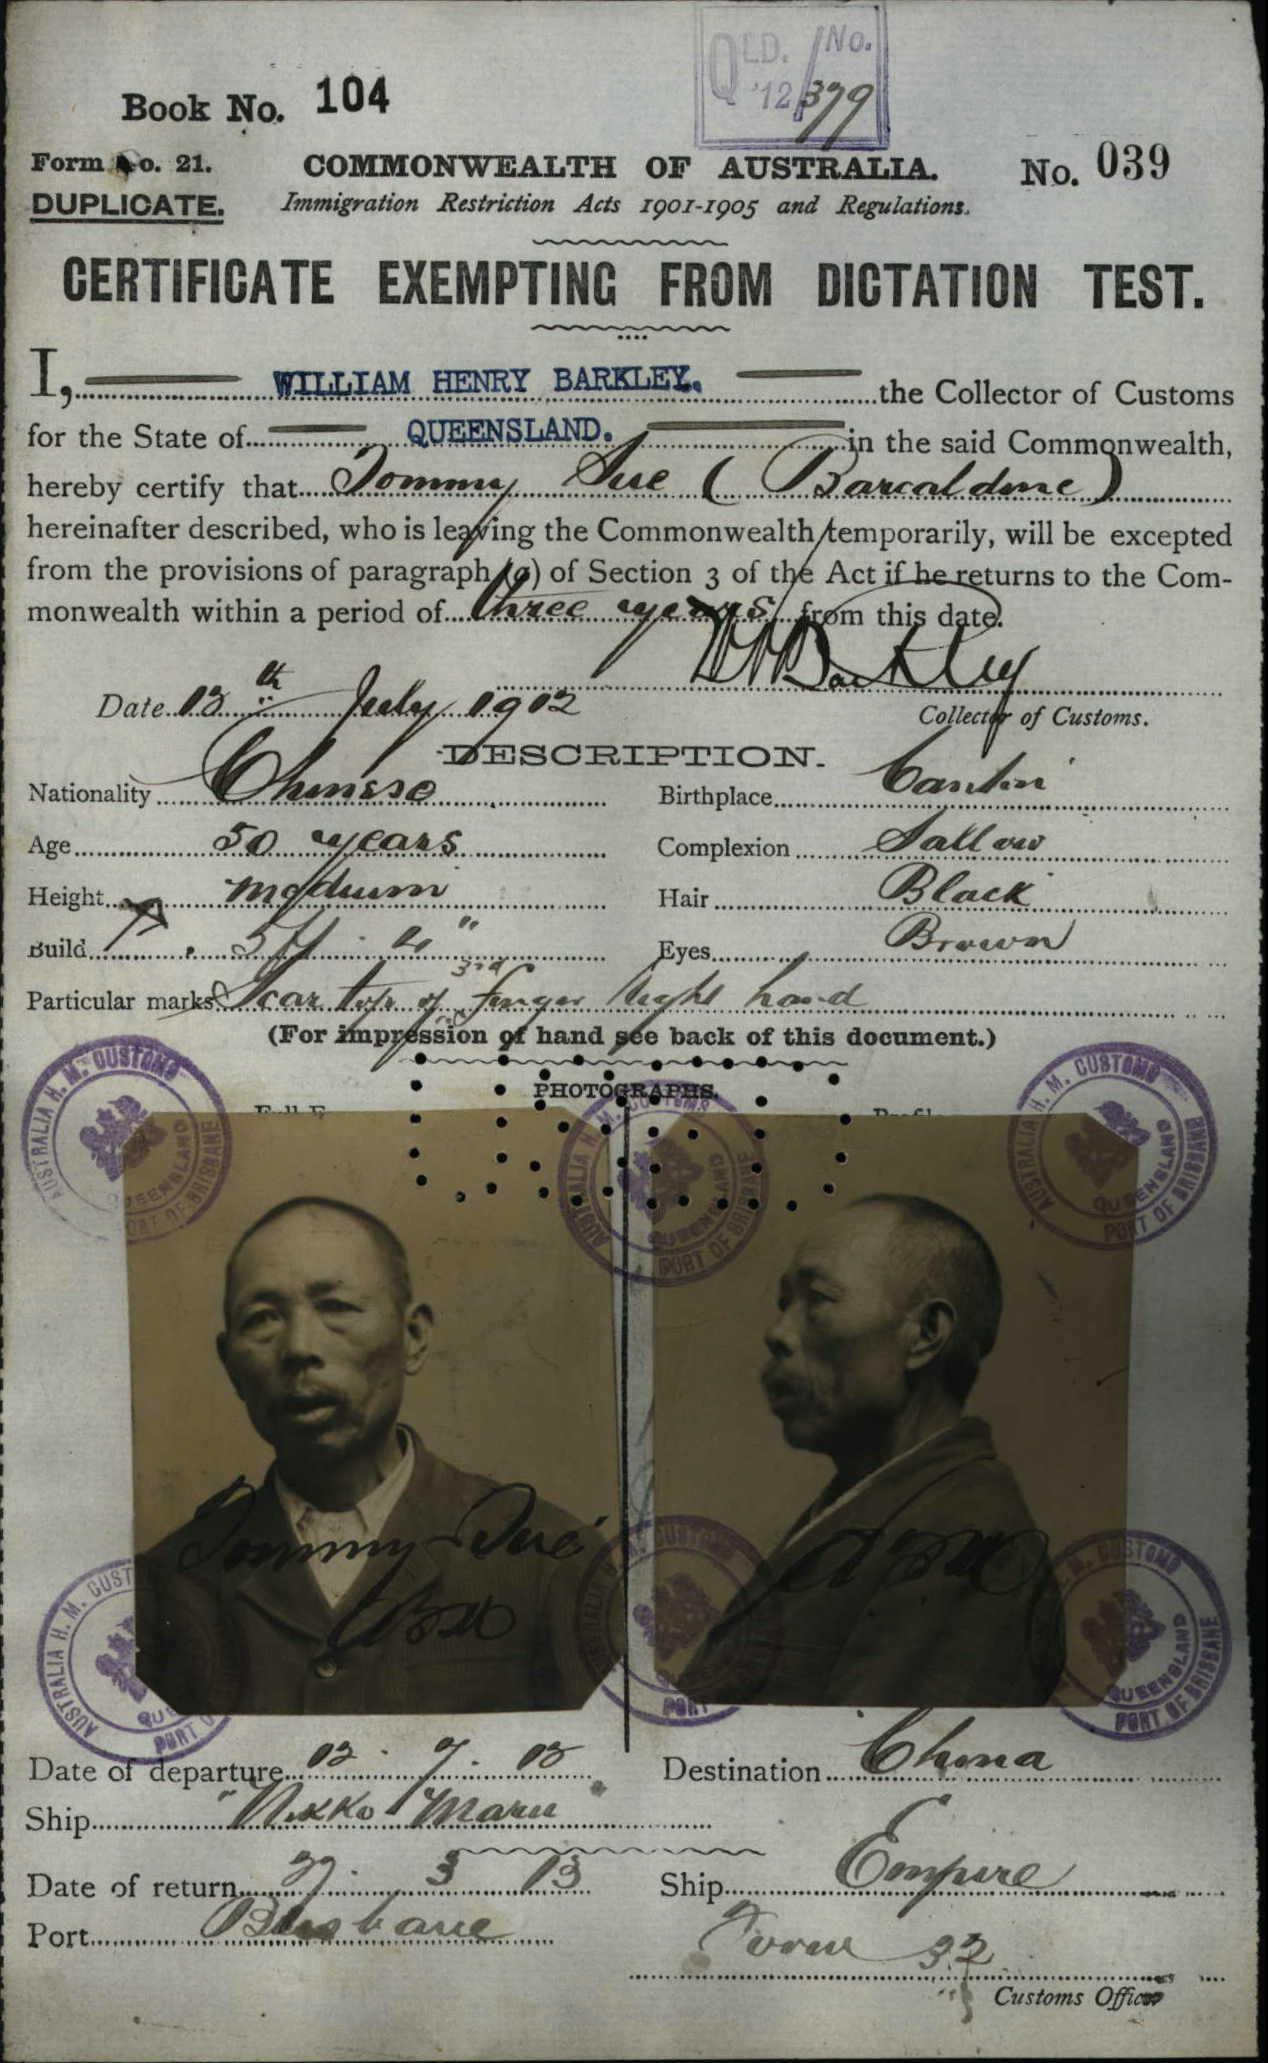 QLD. No.
'12/379
Book No. 104
Form No. 21. COMMONWEALTH OF AUSTRALIA. No. 039
DUPLICATE. Immigration Restriction Acts 1901-1905 and Regulations.
CERTIFICATE EXEMPTING FROM DICTATION TEST.
I, WILLIAM HENRY BARKLEY. the Collector of Customs
for the State of QUEENSLAND. in the said Commonwealth,
hereby certify that Tommy Sue (Barcaldine)
hereinafter described, who is leaving the Commonwealth temporarily, will be excepted
from the provisions of paragraph (a) of Section 3 of the Act if he returns to the Com-
monwealth within a period of three years from this date.
WHBarkley
Date 13th July 1912
Collector of Customs.
DESCRIPTION.
Nationality Chinese Birthplace Canton
Age 50 years Complexion Sallow
Height medium Hair Black
Build 5ft 4" Eyes Brown
Particular marks Scar top of 3rd finger right hand
(For impression of hand see back of this document.)
PHOTOGRAPHS.
AUSTRALIA H. M. CUSTOMS QUEENSLAND PORT OF BRISBANE
AUSTRALIA H. M. CUSTOMS QUEENSLAND PORT OF BRISBANE
AUSTRALIA H. M. CUSTOMS QUEENSLAND PORT OF BRISBANE
Tommy Sue
AUSTRALIA H. M. CUSTOMS
PORT
CUSTOMS QUEENSLAND PORT OF BRISBANE
Date of departure 13. 7. 12 Destination China
Ship "Nikko Maru"
Date of return 27. 3 13 Ship Empire
Port Brisbane Form 32
Customs Officer